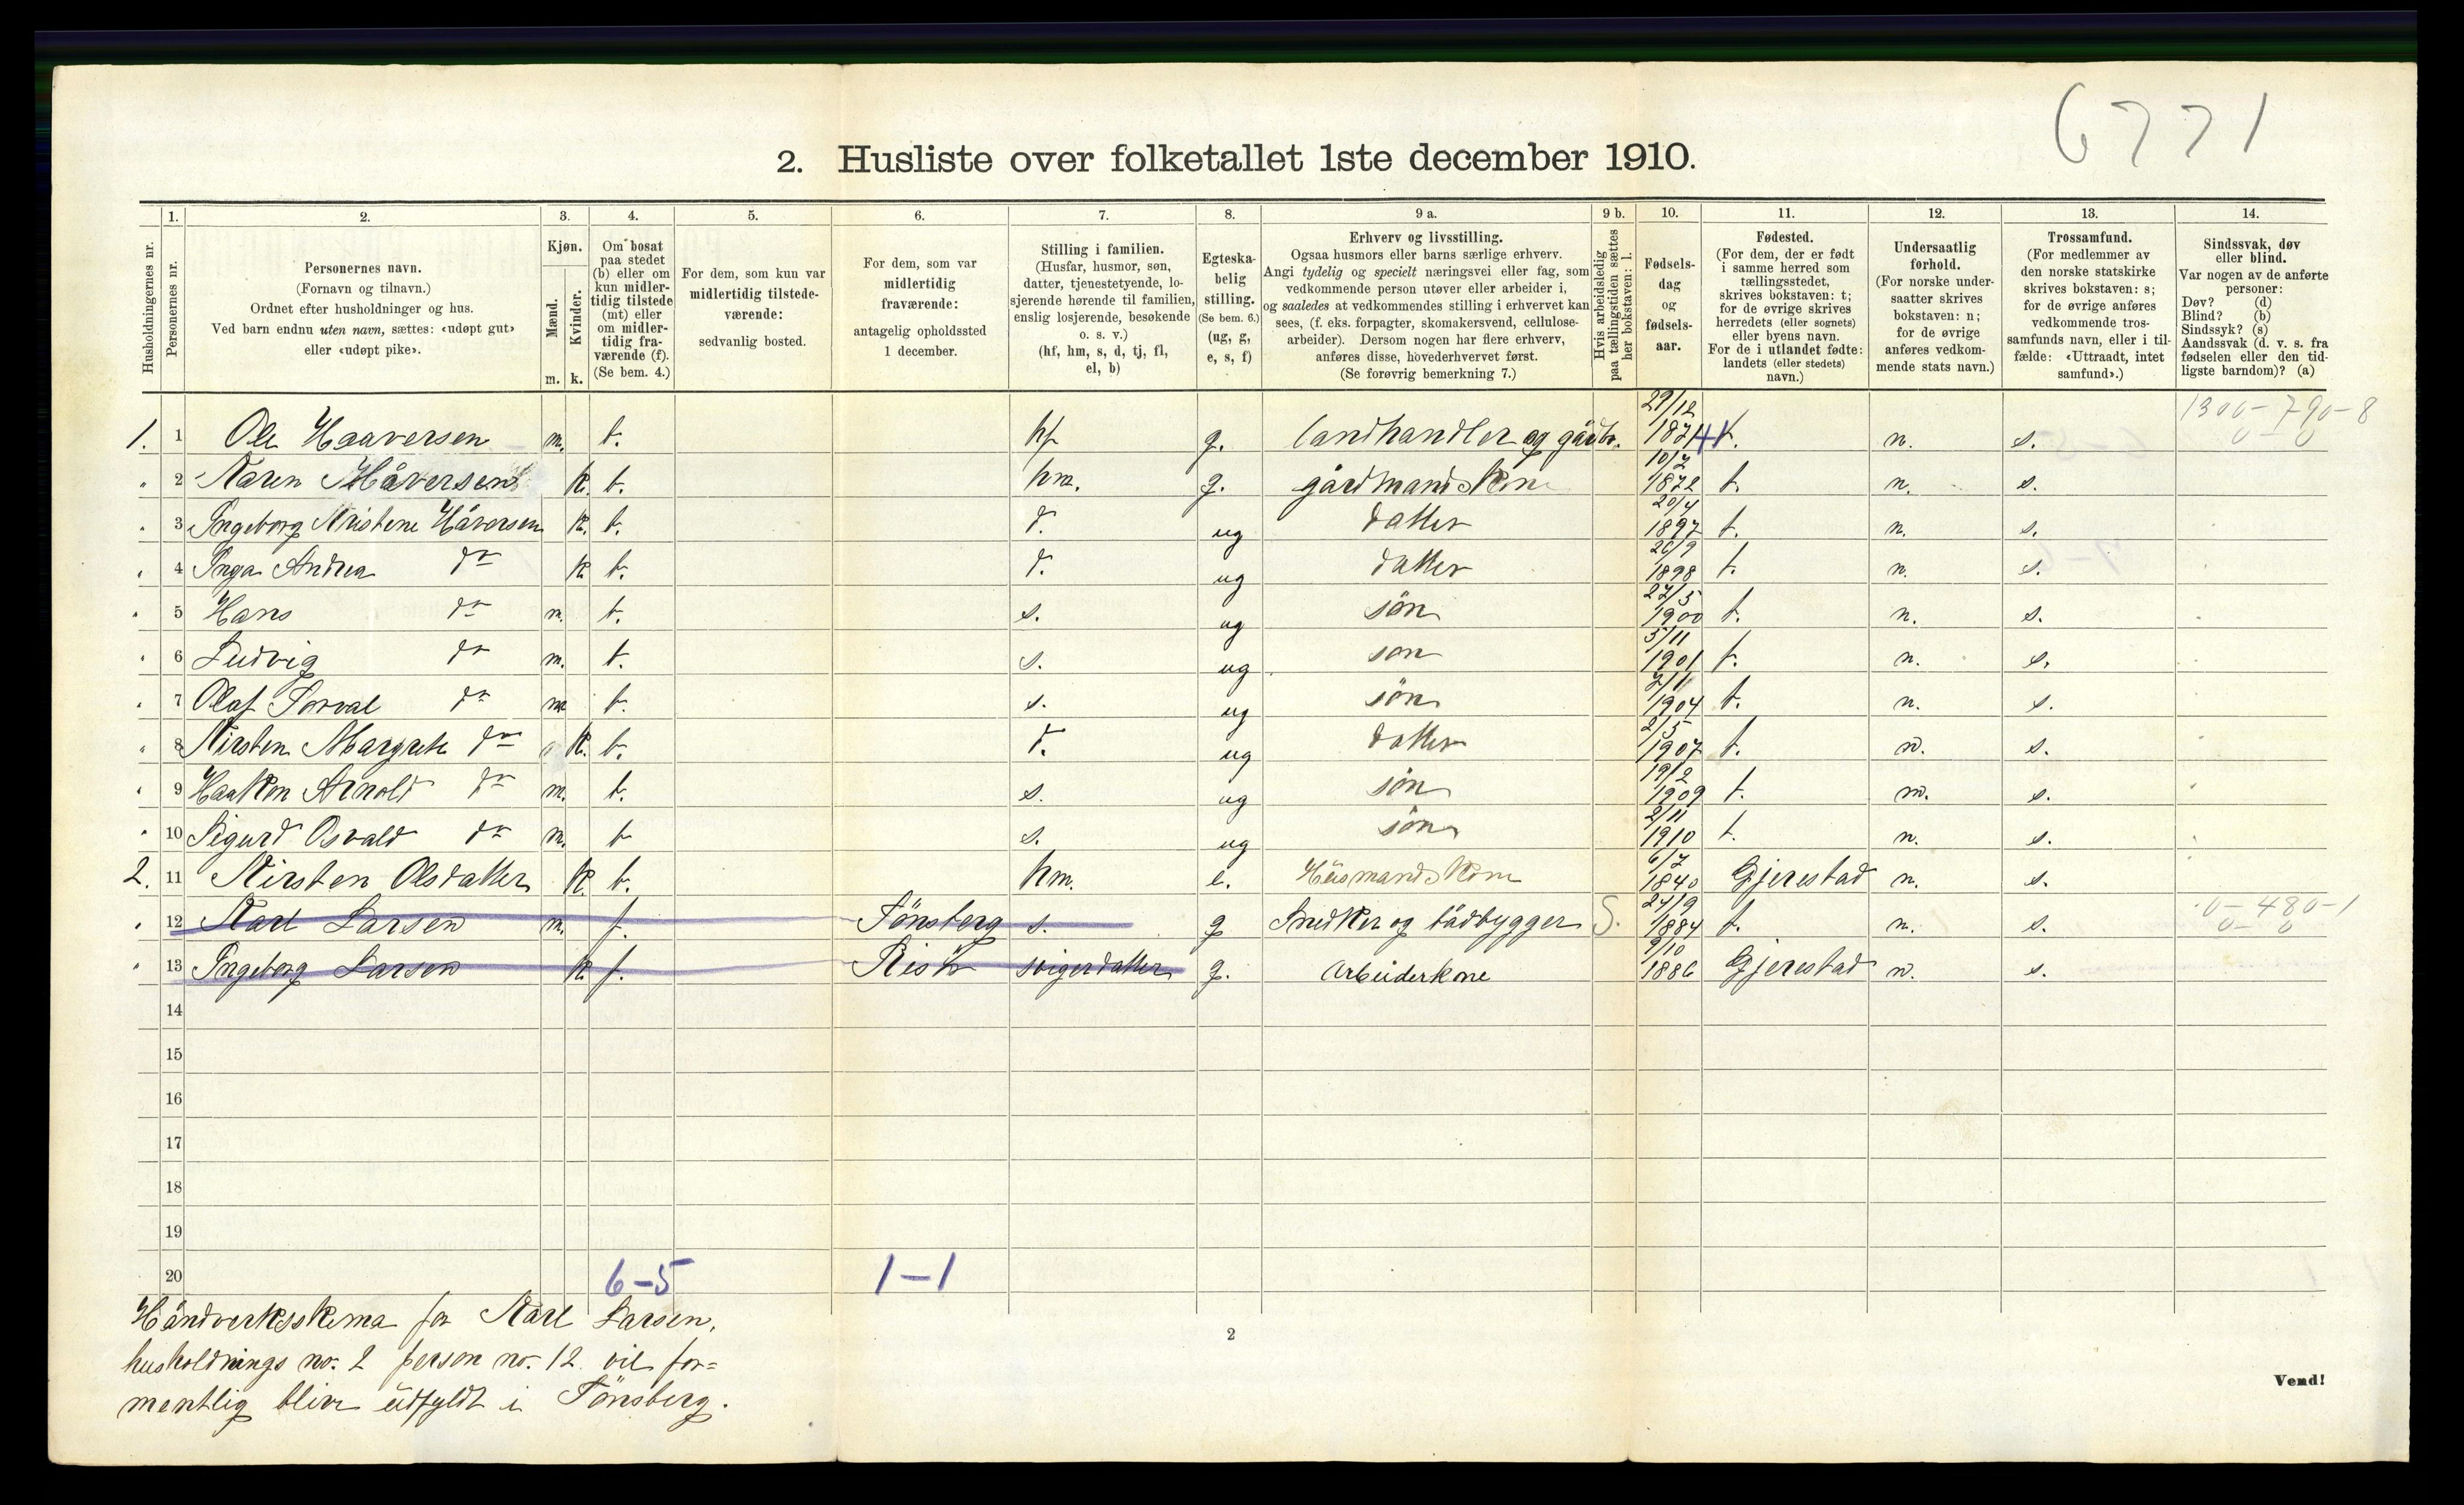 6771
2. Husliste over folketallet 1ste december 1910.
Husholdningernes nr.
1. Personernes nr.
2. Personernes navn.
(Fornavn og tilnavn.)
Ordnet efter husholdninger og hus.
Ved barn endnu uten navn, sættes: «udøpt gut»
eller «udøpt pike».
3. Kjøn.
Mænd. m.
Kvinder. k.
4. Om bosat
paa stedet
(b) eller om
kun midler-
tidig tilstede
(mt) eller
om midler-
tidig fra-
værende (f).
(Se bem. 4.)
5. For dem, som kun var
midlertidig tilstede-
værende:
sedvanlig bosted.
6. For dem, som var
midlertidig
fraværende:
antagelig opholdssted
1 december.
7. Stilling i familien.
(Husfar, husmor, søn,
datter, tjenestetyende, lo-
sjerende hørende til familien,
enslig losjerende, besøkende
o. s. v.)
(hf, hm, s, d, tj, fl,
el, b)
8. Egteska-
belig
stilling.
(Se bem. 6.)
(ug, g,
e, s, f)
9 a. Erhverv og livsstilling.
Ogsaa husmors eller barns særlige erhverv.
Angi tydelig og specielt næringsvei eller fag, som
vedkommende person utøver eller arbeider i,
og saaledes at vedkommendes stilling i erhvervet kan
sees, (f. eks. forpagter, skomakersvend, cellulose-
arbeider). Dersom nogen har flere erhverv,
anføres disse, hovederhvervet først.
(Se forøvrig bemerkning 7.)
9 b. Hvis arbeidsledig
paa tællingstiden sættes
her bokstaven: l.
10. Fødsels-
dag
og
fødsels-
aar.
11. Fødested.
(For dem, der er født
i samme herred som
tællingsstedet,
skrives bokstaven: t;
for de øvrige skrives
herredets (eller sognets)
eller byens navn.
For de i utlandet fødte:
landets (eller stedets)
navn.)
12. Undersaatlig
forhold.
(For norske under-
saatter skrives
bokstaven: n;
for de øvrige
anføres vedkom-
mende stats navn.)
13. Trossamfund.
(For medlemmer av
den norske statskirke
skrives bokstaven: s;
for de øvrige anføres
vedkommende tros-
samfunds navn, eller i til-
fælde: «Uttraadt, intet
samfund».)
14. Sindssvak, døv
eller blind.
Var nogen av de anførte
personer:
Døv? (d)
Blind? (b)
Sindssyk? (s)
Aandssvak (d. v. s. fra
fødselen eller den tid-
ligste barndom)? (a)
1300-790-8
0-0
1. 1 Ole Haaversen m. b. hf g. landhandler og gårdbr. 29/12 1871 t. n. s.
" 2 Karen Håversen k. b. hm. g. gårdmandskone 10/7 1872 t. n. s.
" 3 Ingeborg Kristene Håversen k. b. d. ug datter 20/4 1897 t. n. s.
" 4 Inga Andrea do k. b. d. ug datter 26/9 1898 t. n. s.
" 5 Hans do m. b. s. ug søn 27/5 1900 t. n. s.
" 6 Ludvig do m. b. s. ug søn 5/11 1901 t. n. s.
" 7 Olaf Torval do m b. s. ug søn 7/11 1904 t. n. s.
" 8 Kirsten Margrete do k. b. d. ug datter 2/5 1907 t. n. s.
" 9 Haakon Arnold do m. b. s. ug søn 19/2 1909 t. n. s.
" 10 Sigurd Osvald do m. b s. ug søn 2/11 1910 t. n. s.
2. 11 Kirsten Olsdatter k. b. hm. e. Husmandskone 6/7 1840 Gjerestad n. s.
" 12 Karl Larsen m. f. Tönsberg s. g Snedker og bådbygger S. 24/9 1884 t. n. s. 0-480-1
0-0
" 13 Ingeborg Larsen k f. Risør svigerdatter g. Arbeiderkone 9/10 1886 Gjerestad n. s.
14
15
16
17
18
19
20
6-5 1-1
Håndverksskema for Karl Larsen,
husholdnings no. 2 person no. 12 vil for=
mentlig blive udfyldt i Tönsberg.
2
Vend!